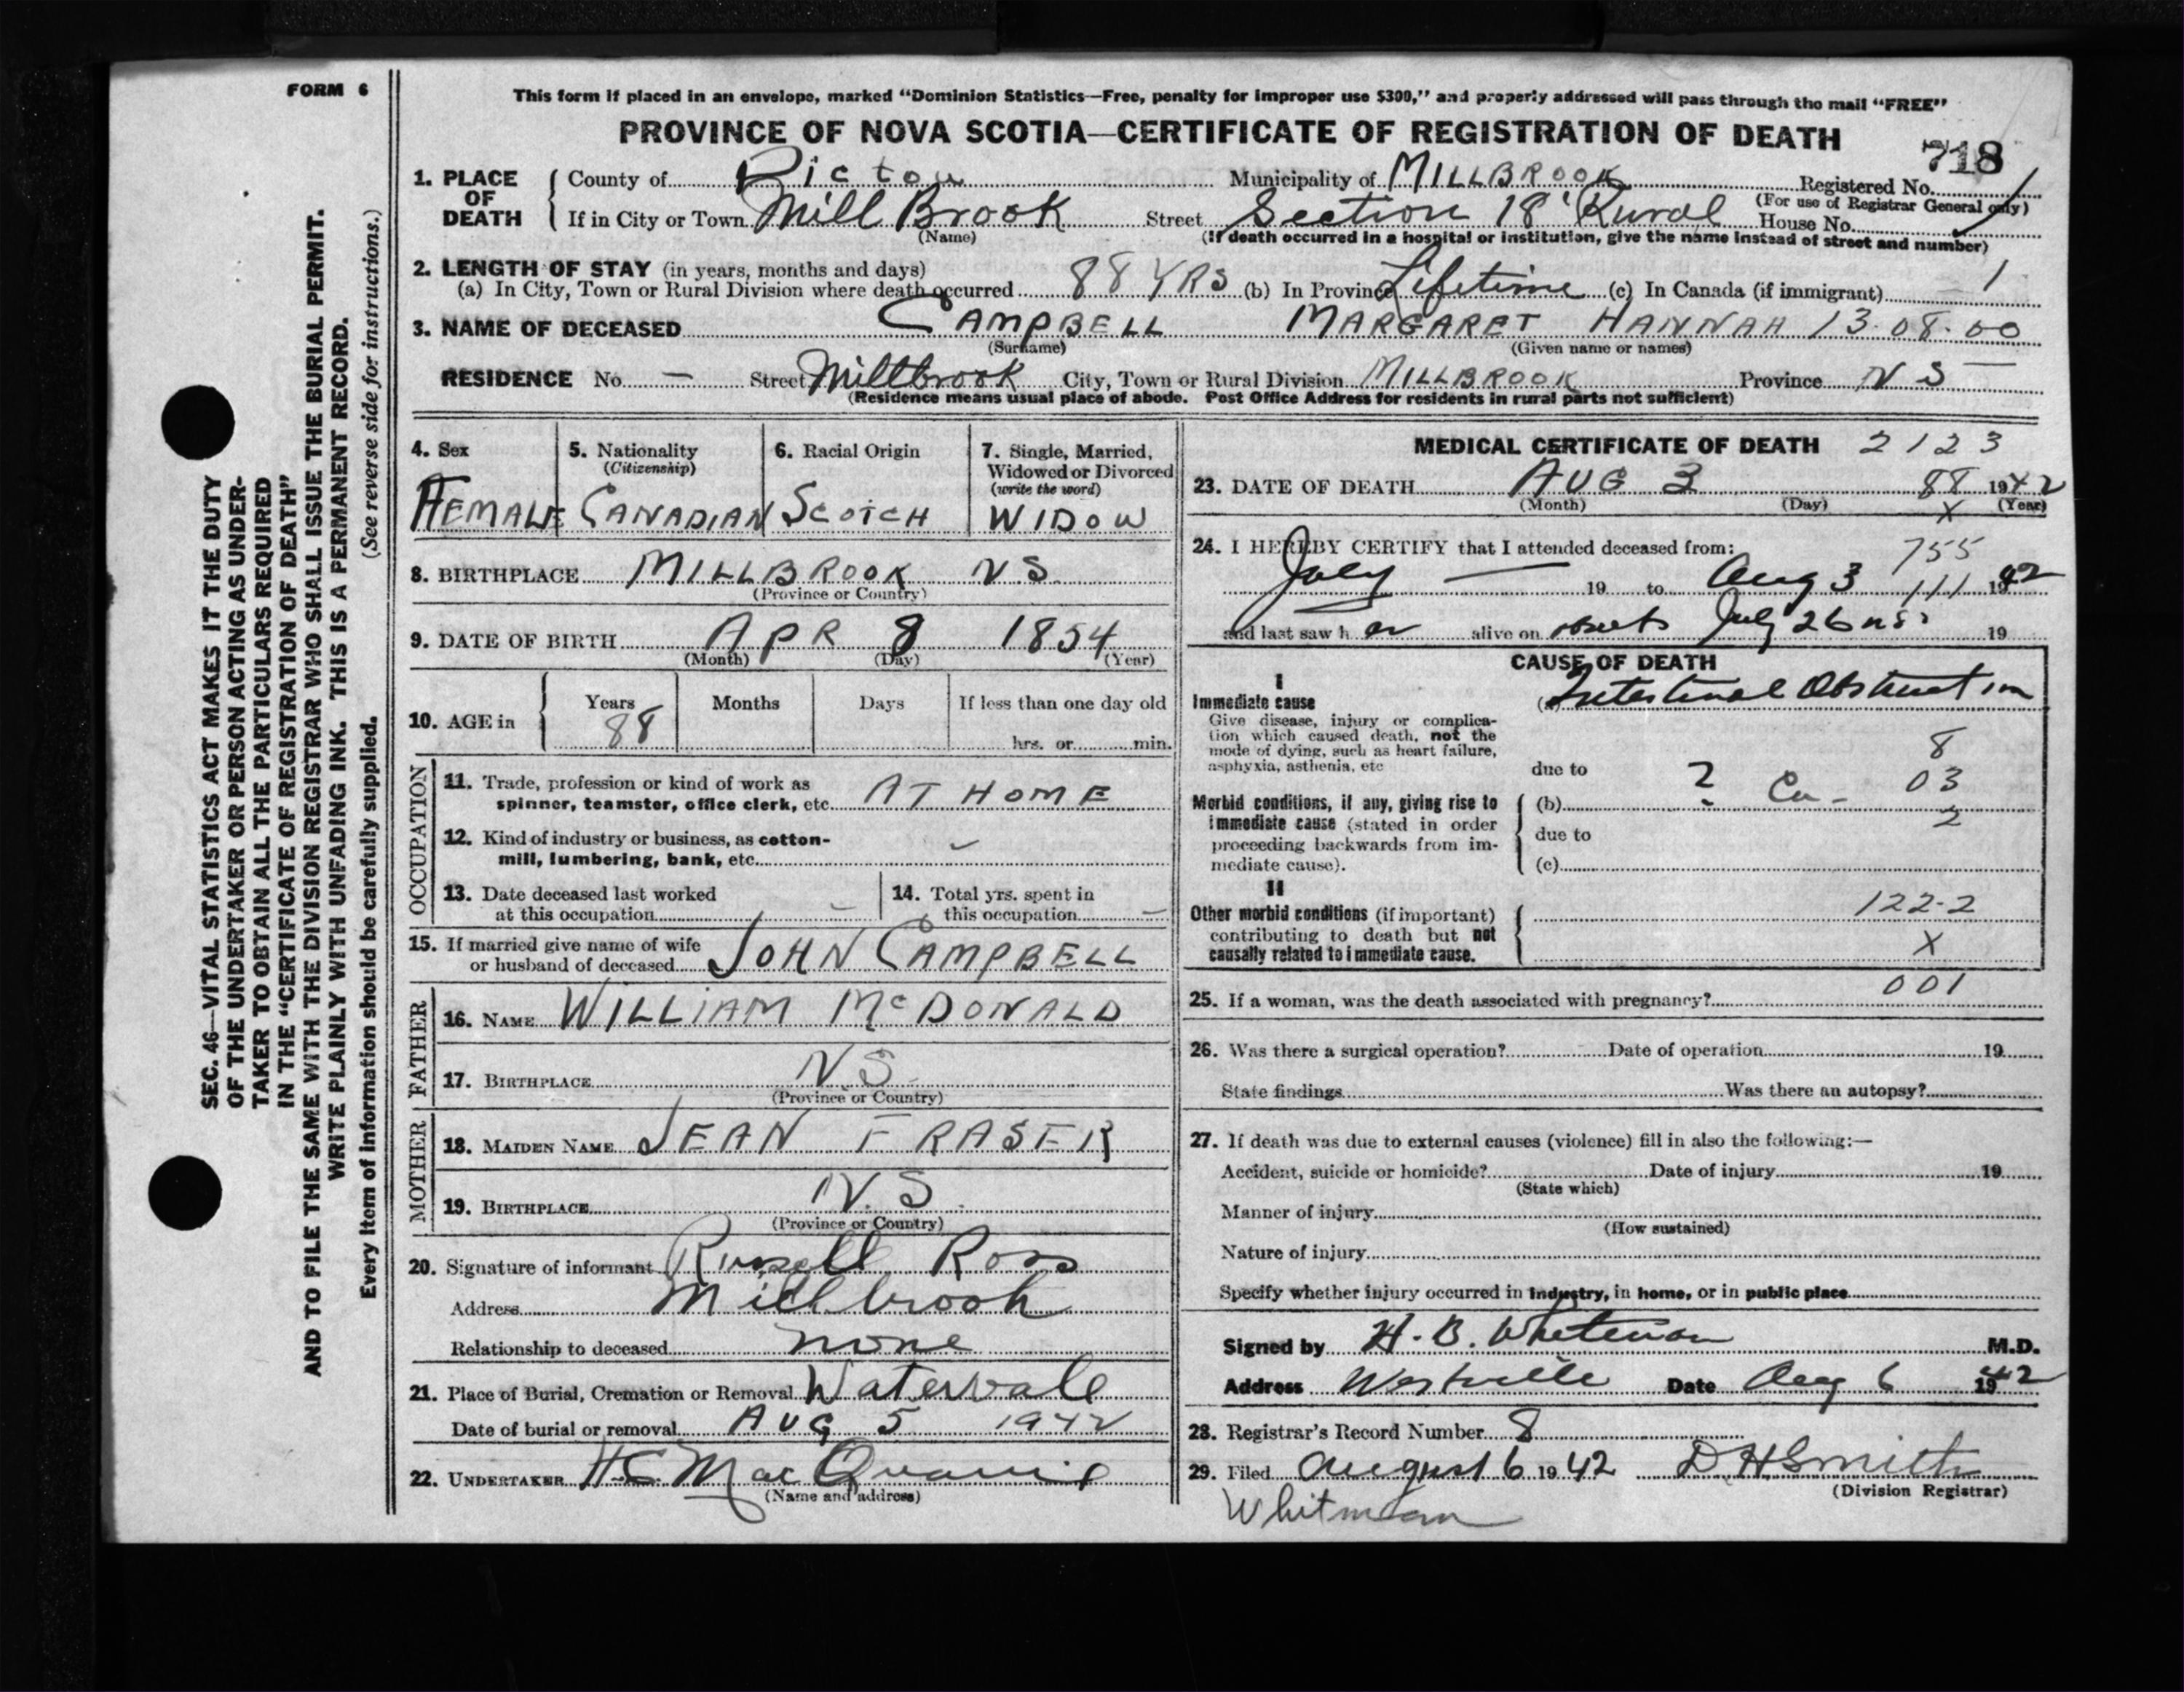 FORM 6
This form if placed in an envelope, marked "Dominion Statistics—Free, penalty for improper use $300," and properly addressed will pass through the mail "FREE"
PROVINCE OF NOVA SCOTIA—CERTIFICATE OF REGISTRATION OF DEATH
718
SEC. 46—VITAL STATISTICS ACT MAKES IT THE DUTY
OF THE UNDERTAKER OR PERSON ACTING AS UNDER-
TAKER TO OBTAIN ALL THE PARTICULARS REQUIRED
IN THE "CERTIFICATE OF REGISTRATION OF DEATH"
AND TO FILE THE SAME WITH THE DIVISION REGISTRAR WHO SHALL ISSUE THE BURIAL PERMIT.
WRITE PLAINLY WITH UNFADING INK. THIS IS A PERMANENT RECORD.
Every item of information should be carefully supplied. (See reverse side for instructions.)
1. PLACE OF DEATH
County of Pictou Municipality of MILLBROOK Registered No.
(For use of Registrar General only)
If in City or Town Mill Brook Street Section 18 Rural House No.
(Name) (If death occurred in a hospital or institution, give the name instead of street and number)
2. LENGTH OF STAY (in years, months and days)
(a) In City, Town or Rural Division where death occurred 88 YRS (b) In Province Lifetime (c) In Canada (if immigrant) 1
3. NAME OF DECEASED CAMPBELL MARGARET HANNAH 13-08-00
(Surname) (Given name or names)
RESIDENCE No. — Street Millbrook City, Town or Rural Division MILLBROOK Province N S
(Residence means usual place of abode. Post Office Address for residents in rural parts not sufficient)
4. Sex
FEMALE
5. Nationality
(Citizenship)
CANADIAN
6. Racial Origin
SCOTCH
7. Single, Married,
Widowed or Divorced
(write the word)
WIDOW
8. BIRTHPLACE MILLBROOK N.S.
(Province or Country)
9. DATE OF BIRTH APR 8 1854
(Month) (Day) (Year)
10. AGE in Years Months Days If less than one day old
88 hrs. or min.
OCCUPATION
11. Trade, profession or kind of work as
spinner, teamster, office clerk, etc. AT HOME
12. Kind of industry or business, as cotton-
mill, lumbering, bank, etc.
13. Date deceased last worked
at this occupation
14. Total yrs. spent in
this occupation
15. If married give name of wife
or husband of deceased JOHN CAMPBELL
FATHER
16. NAME WILLIAM McDONALD
17. BIRTHPLACE N.S.
(Province or Country)
MOTHER
18. MAIDEN NAME JEAN FRASER
19. BIRTHPLACE N.S.
(Province or Country)
20. Signature of informant Russell Ross
Address Millbrook
Relationship to deceased none
21. Place of Burial, Cremation or Removal Watervale
Date of burial or removal AUG 5 1942
22. UNDERTAKER H C MacQuarrie
(Name and address)
MEDICAL CERTIFICATE OF DEATH 2123
23. DATE OF DEATH AUG 3 88 1942
(Month) (Day) X (Year)
24. I HEREBY CERTIFY that I attended deceased from:
755
July — 19 to Aug 3 111 1942
and last saw h er alive on July 26 19
CAUSE OF DEATH
I
Immediate cause
Give disease, injury or complica-
tion which caused death, not the
mode of dying, such as heart failure,
asphyxia, asthenia, etc
(a) Intestinal Obstruction
8
due to
Morbid conditions, if any, giving rise to
immediate cause (stated in order
proceeding backwards from im-
mediate cause).
(b) ? Ca - 03
2
due to
(c)
II
Other morbid conditions (if important)
contributing to death but not
causally related to immediate cause.
122-2
X
25. If a woman, was the death associated with pregnancy? 001
26. Was there a surgical operation? Date of operation 19
State findings Was there an autopsy?
27. If death was due to external causes (violence) fill in also the following:—
Accident, suicide or homicide? Date of injury 19
(State which)
Manner of injury
(How sustained)
Nature of injury
Specify whether injury occurred in industry, in home, or in public place
Signed by H. B. Whitman M.D.
Address Westville Date Aug 6 1942
28. Registrar's Record Number 8
29. Filed August 6 1942 D H Smith
(Division Registrar)
Whitman